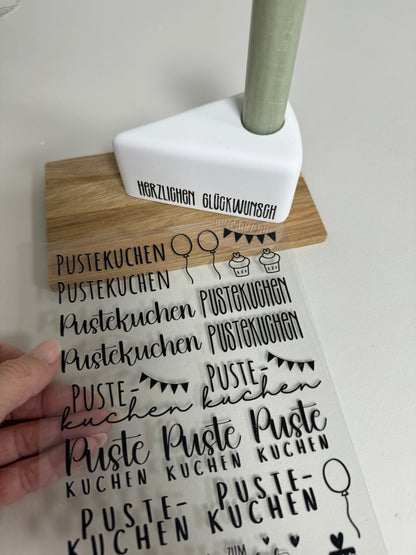 HERZLICHEN GLÜCKWUNSCH
PUSTEKUCHEN
PUSTEKUCHEN
PUSTEKUCHEN
Pustekuchen
PUSTEKUCHEN
Pustekuchen
PUSTE-
kuchen
PUSTE-
kuchen
Puste
KUCHEN
Puste
KUCHEN
Puste
KUCHEN
PUSTE-
KUCHEN
PUSTE-
KUCHEN
ZUM